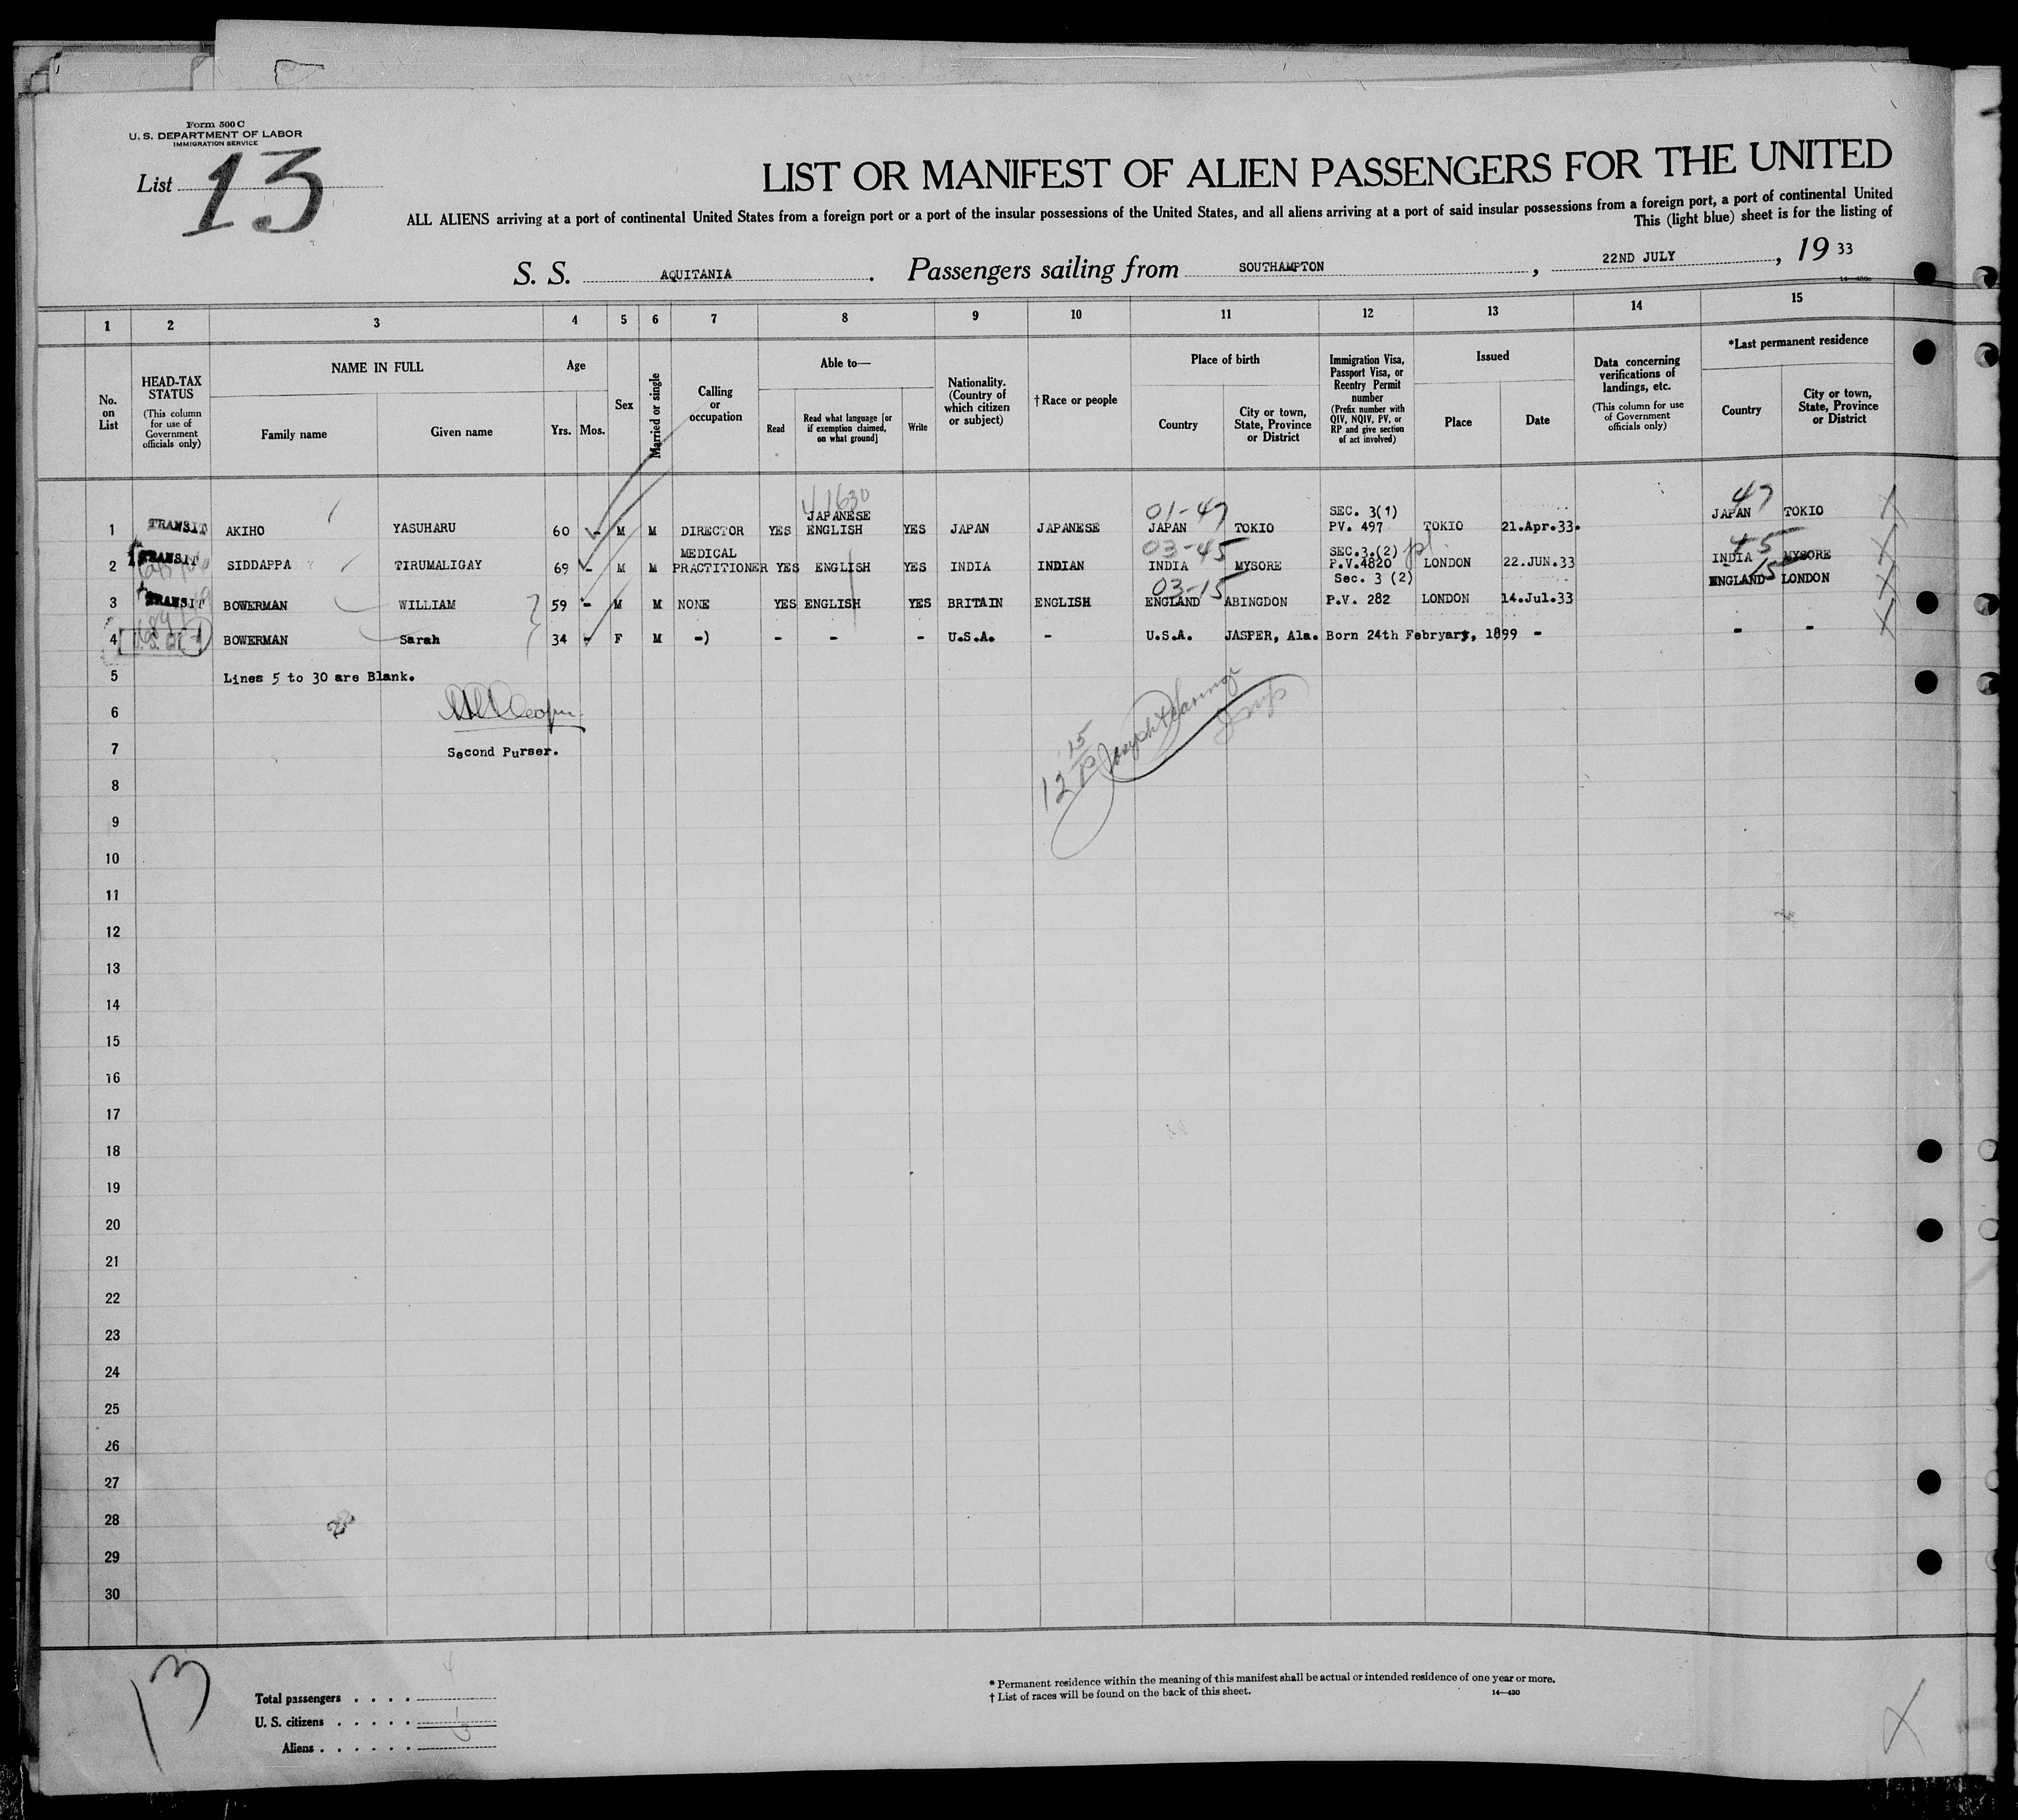 Form 500 C
U. S. DEPARTMENT OF LABOR
IMMIGRATION SERVICE
List 13
LIST OR MANIFEST OF ALIEN PASSENGERS FOR THE UNITED
ALL ALIENS arriving at a port of continental United States from a foreign port or a port of the insular possessions of the United States, and all aliens arriving at a port of said insular possessions from a foreign port, a port of continental United
This (light blue) sheet is for the listing of
S. S. AQUITANIA . Passengers sailing from SOUTHAMPTON , 22ND JULY , 19 33
1 2 3 4 5 6 7 8 9 10 11 12 13 14 15
No. on List
HEAD-TAX STATUS
(This column for use of Government officials only)
NAME IN FULL
Family name
Given name
Age
Yrs. Mos.
Sex
Married or single
Calling or occupation
Able to—
Read
Read what language [or if exemption claimed, on what ground]
Write
Nationality. (Country of which citizen or subject)
†Race or people
Place of birth
Country
City or town, State, Province or District
Immigration Visa, Passport Visa, or Reentry Permit number
(Prefix number with QIV, NQIV, PV, or RP and give section of act involved)
Issued
Place
Date
Data concerning verifications of landings, etc.
(This column for use of Government officials only)
*Last permanent residence
Country
City or town, State, Province or District
41630 01-47 47
JAPANESE SEC. 3(1)
1 TRANSIT AKIHO YASUHARU 60 - M M DIRECTOR YES ENGLISH YES JAPAN JAPANESE JAPAN TOKIO PV. 497 TOKIO 21.Apr.33. JAPAN TOKIO
03-45 45
MEDICAL SEC.3.(2)
2 TRANSIT SIDDAPPA TIRUMALIGAY 69 - M M PRACTITIONER YES ENGLISH YES INDIA INDIAN INDIA MYSORE P.V.4820 LONDON 22.JUN.33 INDIA MYSORE
03-15 Sec. 3 (2) 15
3 TRANSIT BOWERMAN WILLIAM 59 - M M NONE YES ENGLISH YES BRITAIN ENGLISH ENGLAND ABINGDON P.V. 282 LONDON 14.Jul.33 ENGLAND LONDON
4 BOWERMAN Sarah 34 - F M -) - - - U.S.A. - U.S.A. JASPER, Ala. Born 24th Febryary, 1899 - - -
5 Lines 5 to 30 are Blank.
6
7 Second Purser.
8
9
10
11
12
13
14
15
16
17
18
19
20
21
22
23
24
25
26
27
28
29
30
13
Total passengers . . . . 4
U. S. citizens . . . . . 1
Aliens . . . . . . 3
* Permanent residence within the meaning of this manifest shall be actual or intended residence of one year or more.
† List of races will be found on the back of this sheet.
14—430